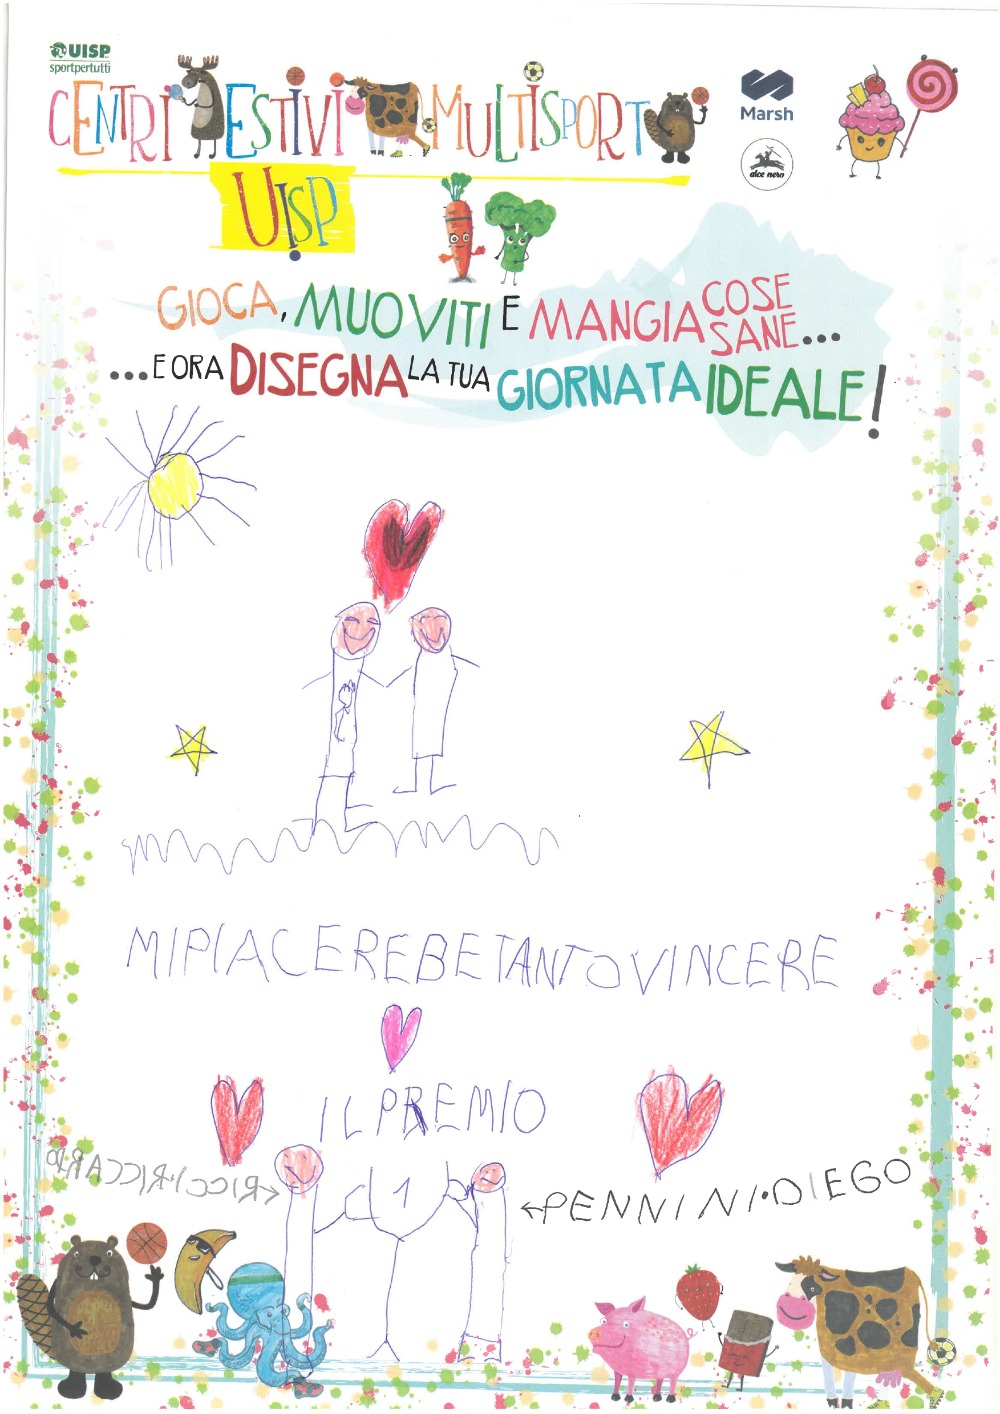 UISP
sportpertutti
CENTRI ESTIVI MULTISPORT
UISP
Marsh
alce nero
GIOCA, MUOVITI E MANGIA COSE SANE...
...E ORA DISEGNA LA TUA GIORNATA IDEALE!
MIPIACEREBETANTOVINCERE
IL PREMIO
RICCI·RICCARDO
1
←PENNINI·DIEGO